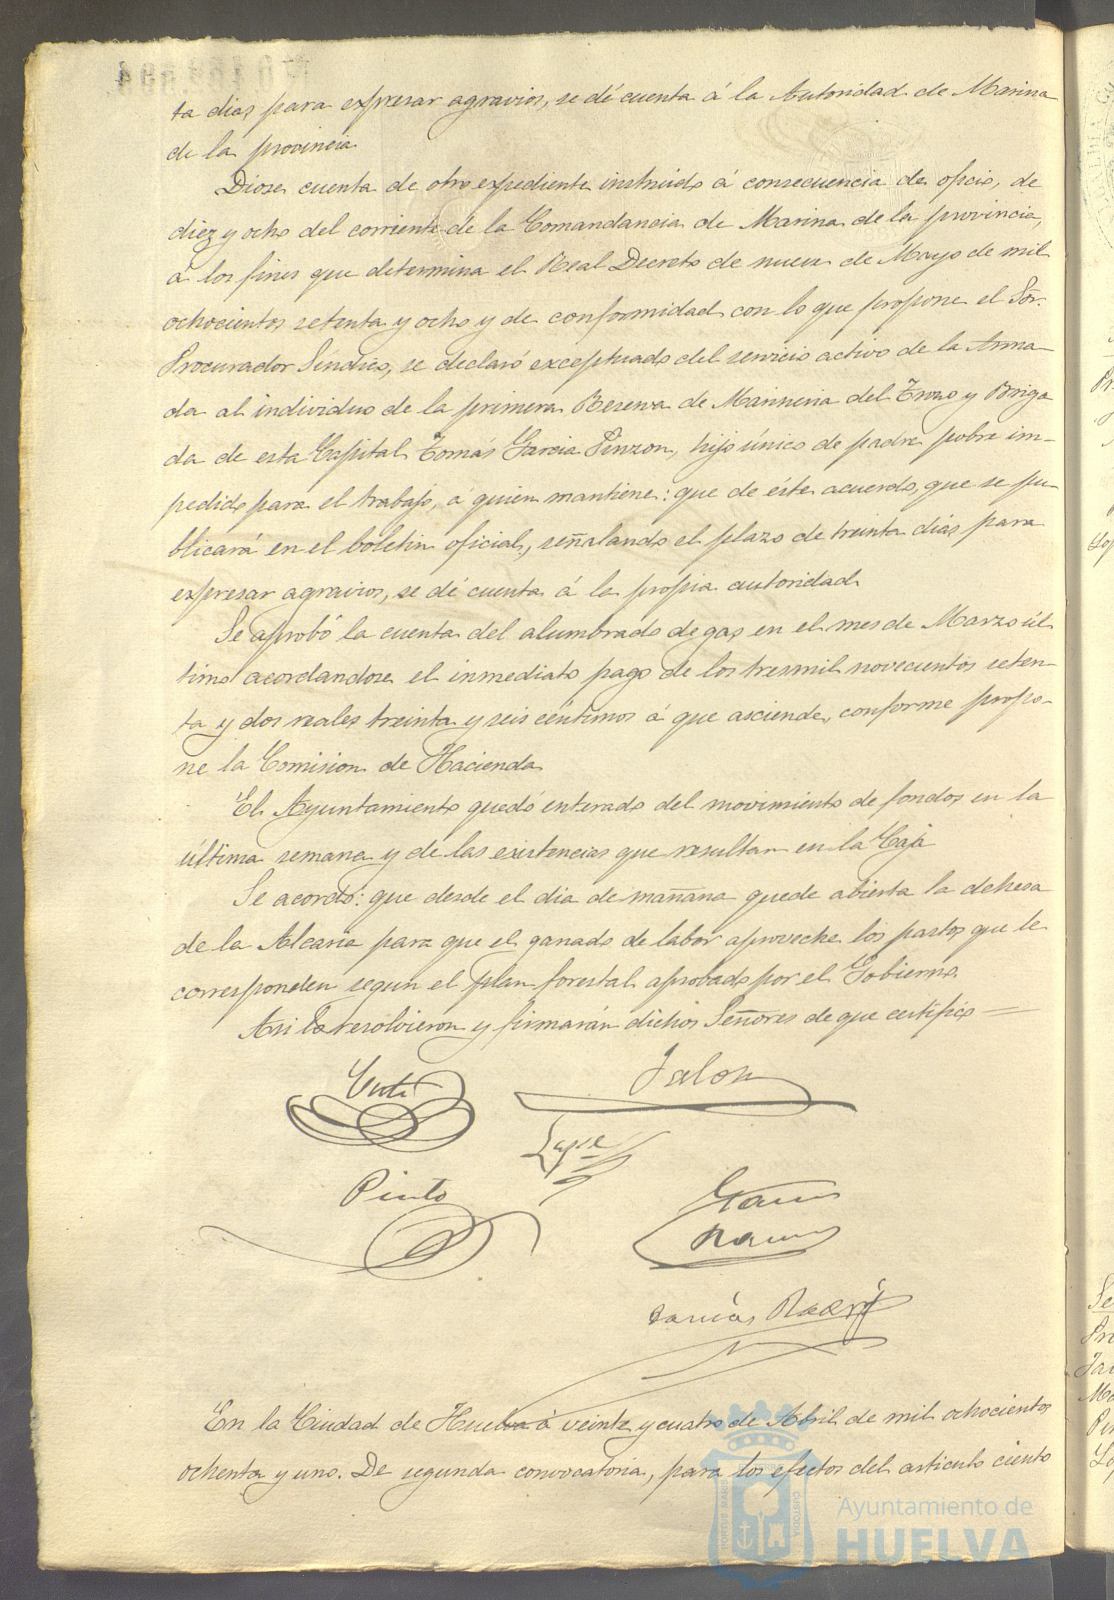 ta dias para expresar agravios, se dé cuenta á la Autoridad de Marina
de la provincia
Diose cuenta de otro expediente instruido á consecuencia de oficio, de
diez y ocho del corriente de la Comandancia de Marina de la provincia,
á los fines que determina el Real Decreto de nueve de Mayo de mil
ochocientos setenta y ocho y de conformidad con lo que propone el Sor.
Procurador Sindico, se declaró exceptuado del servicio activo de la Arma-
da al individuo de la primera Reserva de Marineria del Trozo y Briga
da de esta Capital Tomás Garcia Pinzon, hijo único de padre pobre im-
pedido para el trabajo, á quien mantiene: que de éste acuerdo, que se pu-
blicará en el boletin oficial, señalando el plazo de treinta dias para
expresar agravios, se dé cuenta á la propia autoridad
Se aprobó la cuenta del alumbrado de gas en el mes de Marzo úl
timo acordandose el inmediato pago de los tresmil novecientos seten-
ta y dos reales treinta y seis céntimos á que asciende, conforme propo-
ne la Comision de Hacienda
El Ayuntamiento quedó enterado del movimiento de fondos en la
última semana y de las existencias que resultan en la Caja
Se acordó: que desde el dia de mañana quede abierta la dehesa
de la Alcaria para que el ganado de labor aproveche los pastos que le
corresponden segun el plan forestal aprobado por el Gobierno.
Asi lo resolvieron y firmarán dichos Señores de que certifico =
Jalon
Pinto
En la Ciudad de Huelva á veinte y cuatro de Abril de mil ochocientos
ochenta y uno. De segunda convocatoria, para los efectos del articulo ciento
Ayuntamiento de
HUELVA